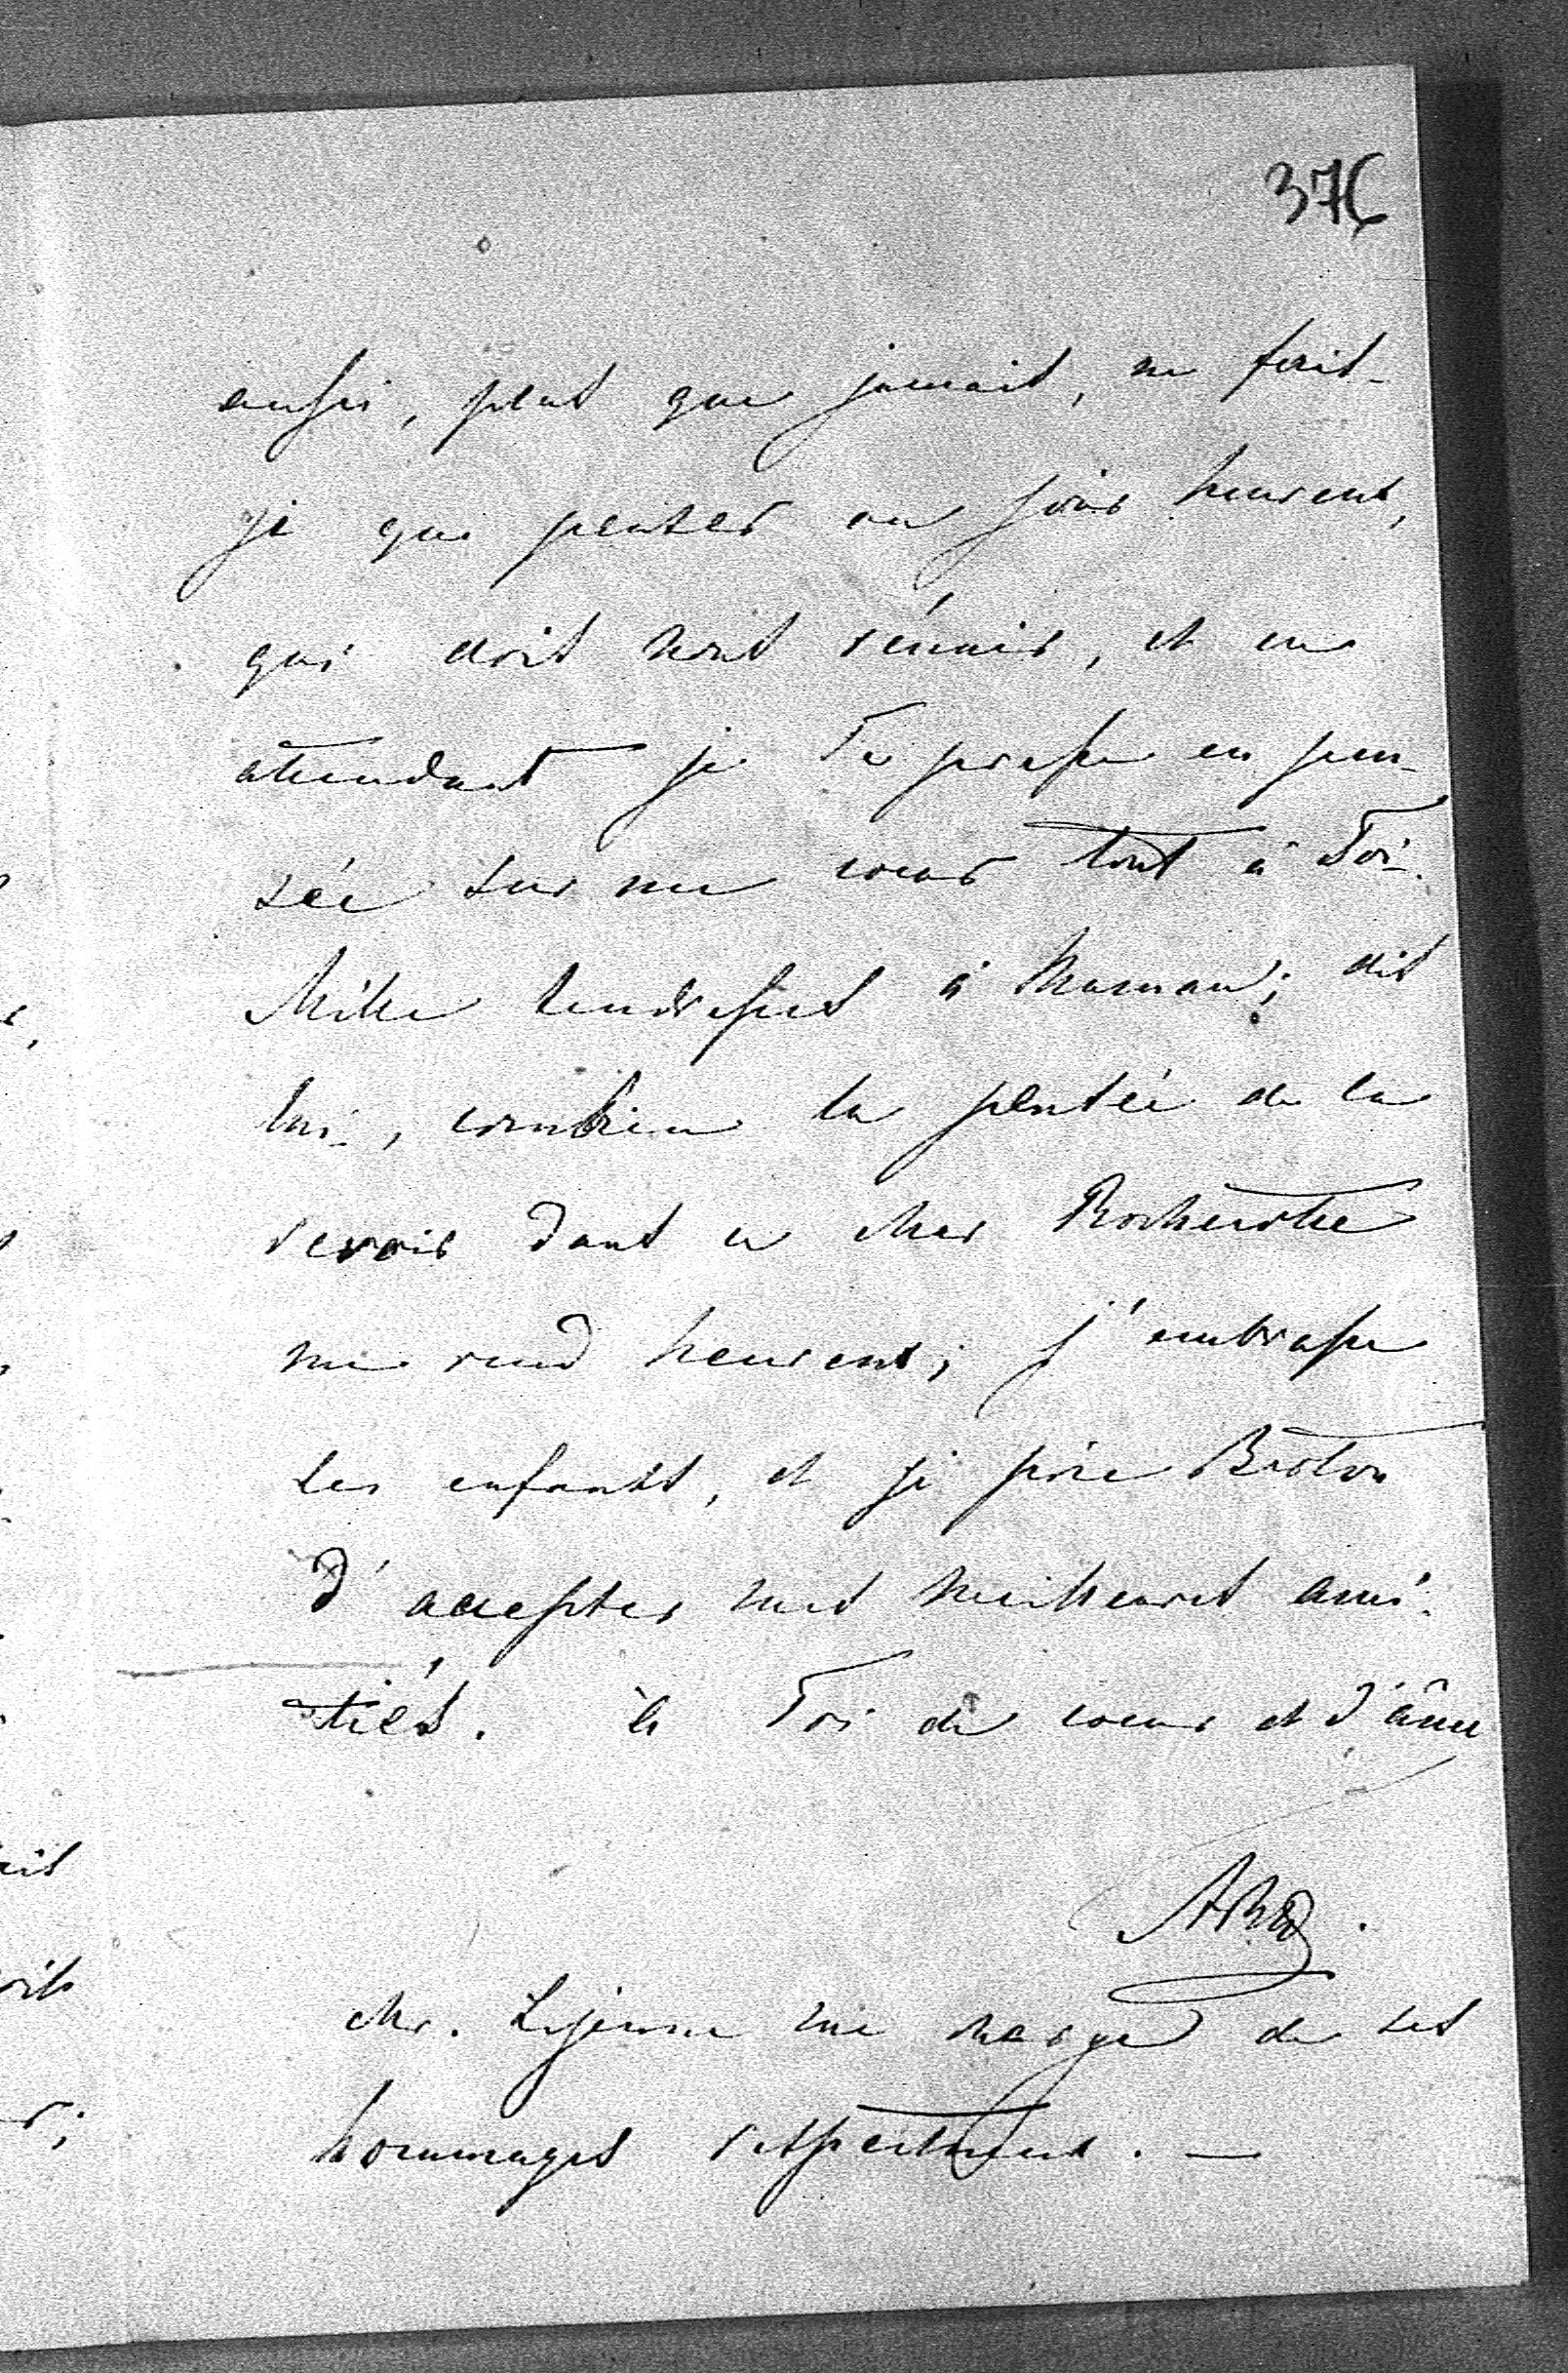 376
aussi, plus que jamais, ne fais-
je que penser au jour heureux,
qui doit nous réunir, et en
attendant je Te presse en pen-
sée sur un coeur tout à Toi.
Mille tendresses à Maman; dis
lui, combien la pensée de la
revoir dans ce cher
me rend heureux; j'embrasse
les enfants, et je prie
d'accepter mes meilleures ami-
tiés. à Toi de coeur et d'âme
Mr. Lejeune me charge de ses
hommages respectueux. —